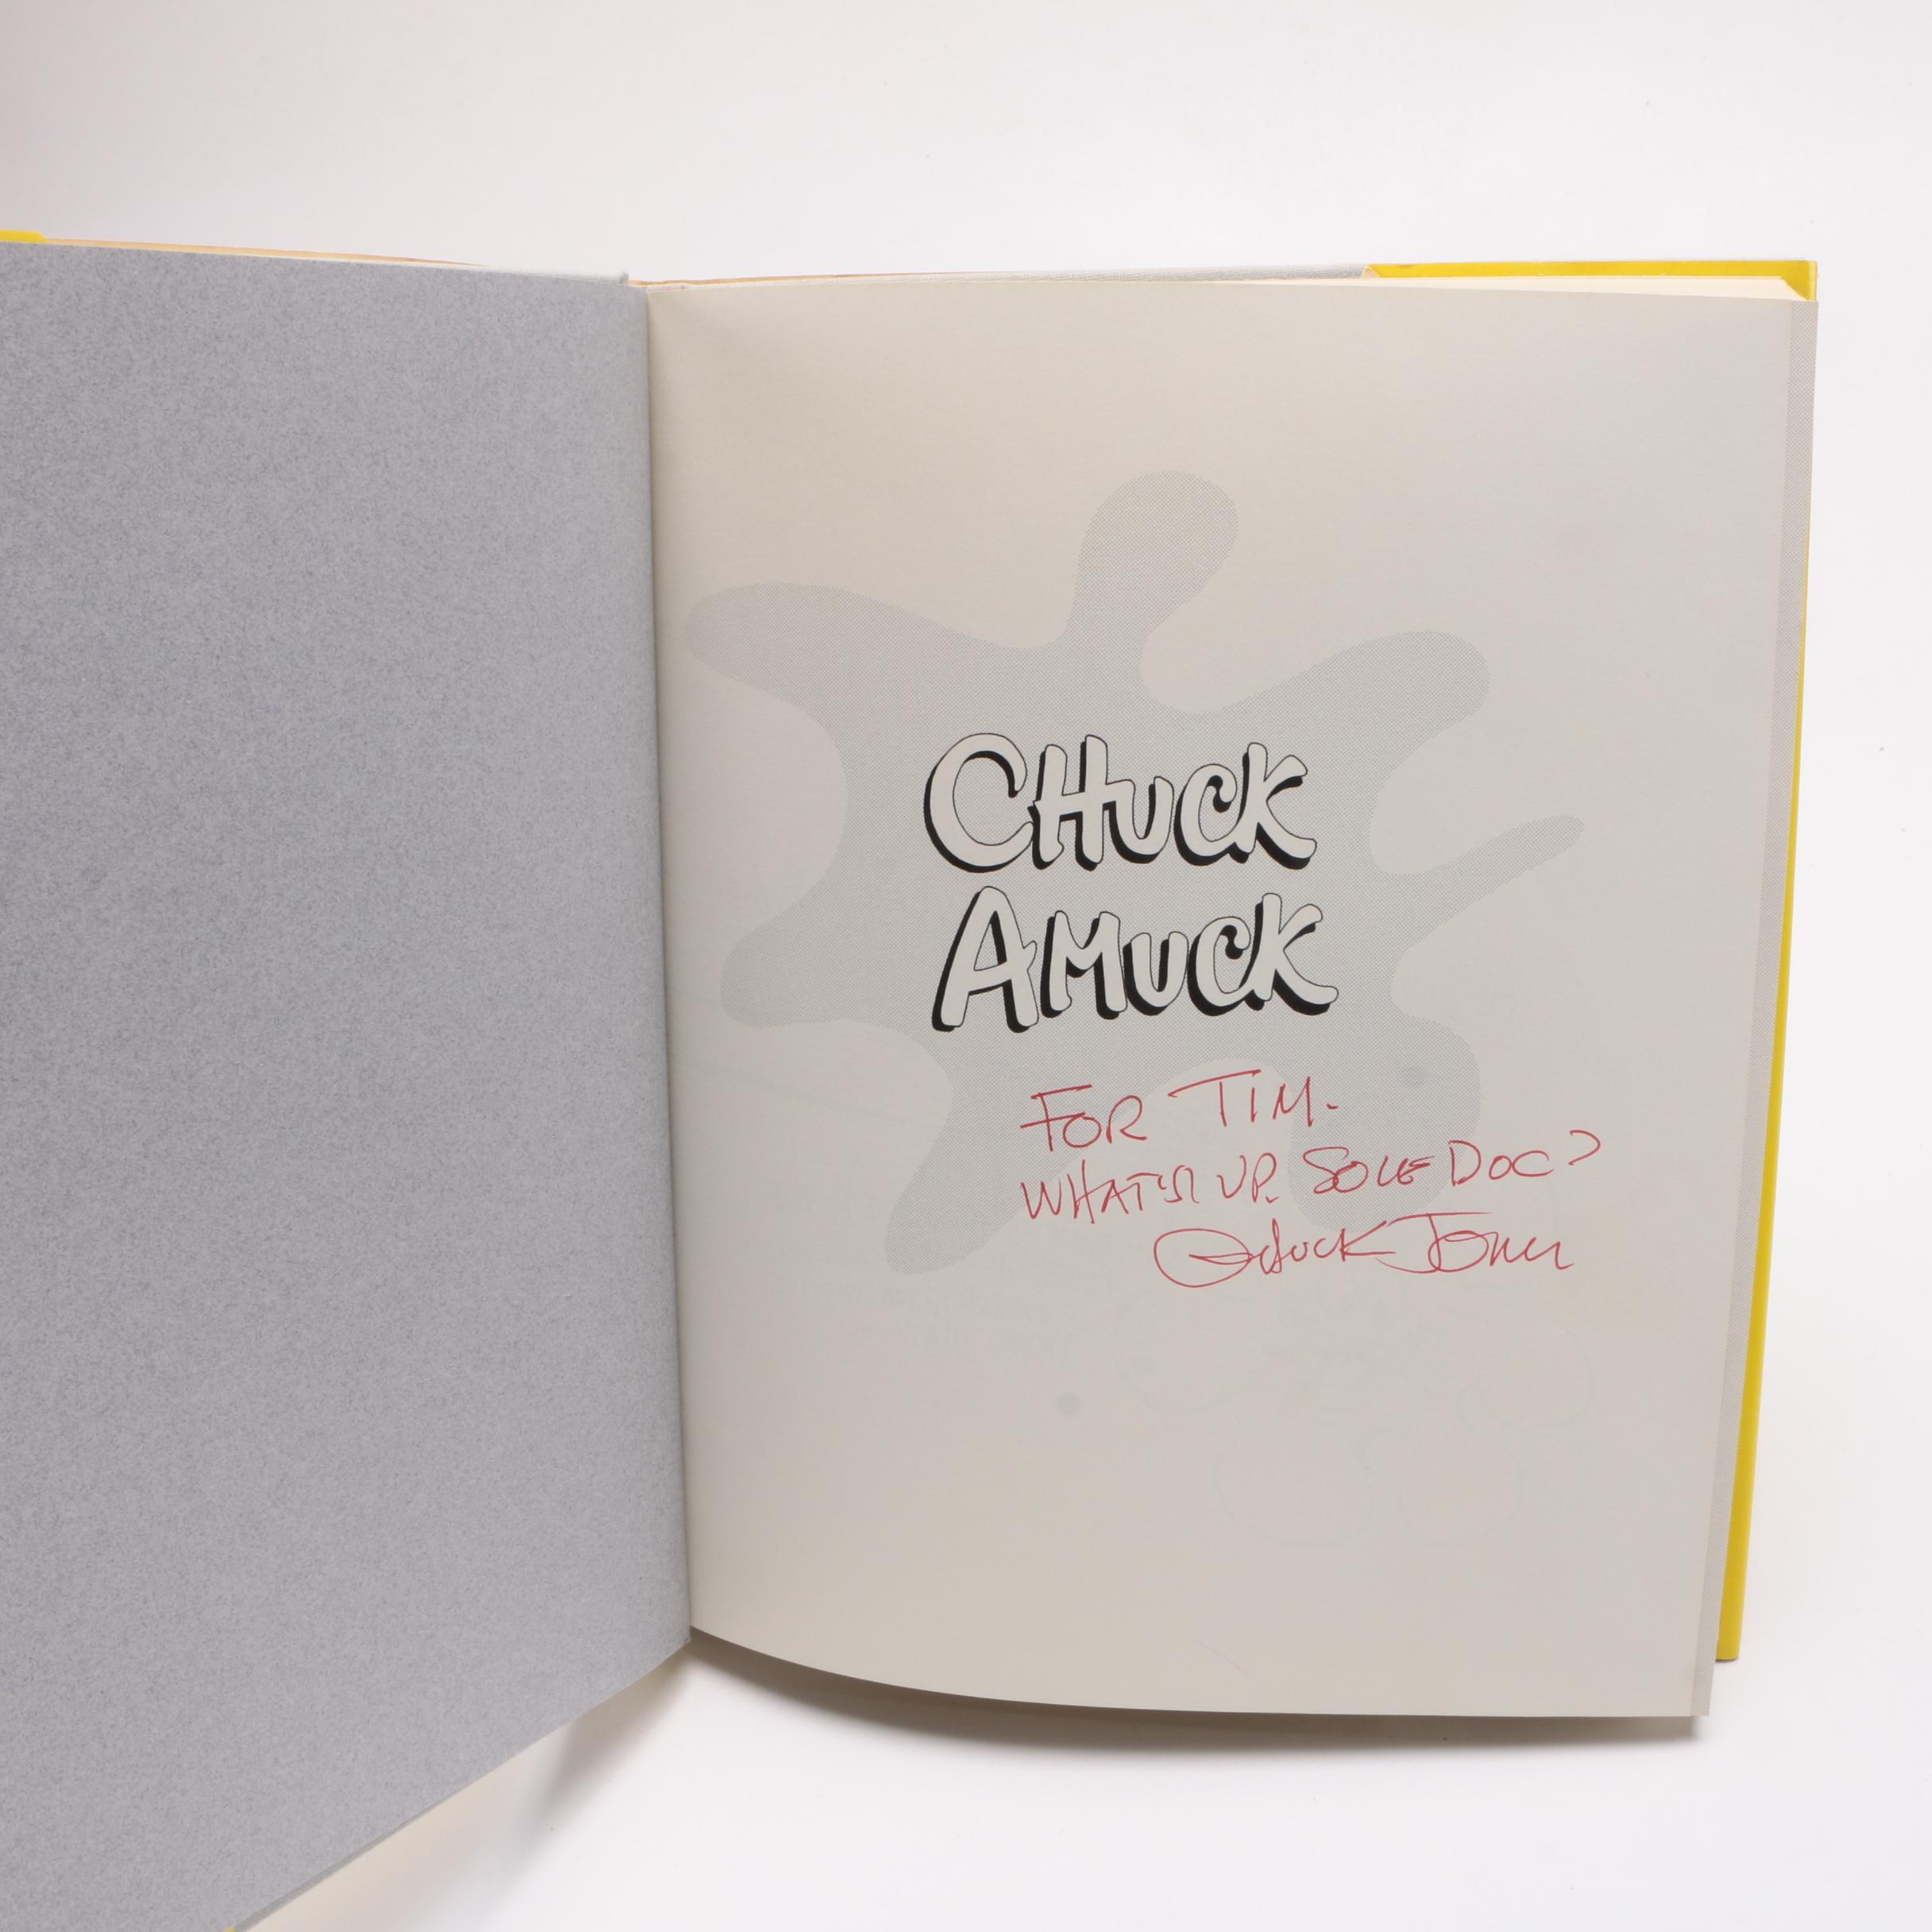 CHUCK
AMUCK
FOR TIM-
WHAT'S UP. SOLE DOC?
Chuck Jones